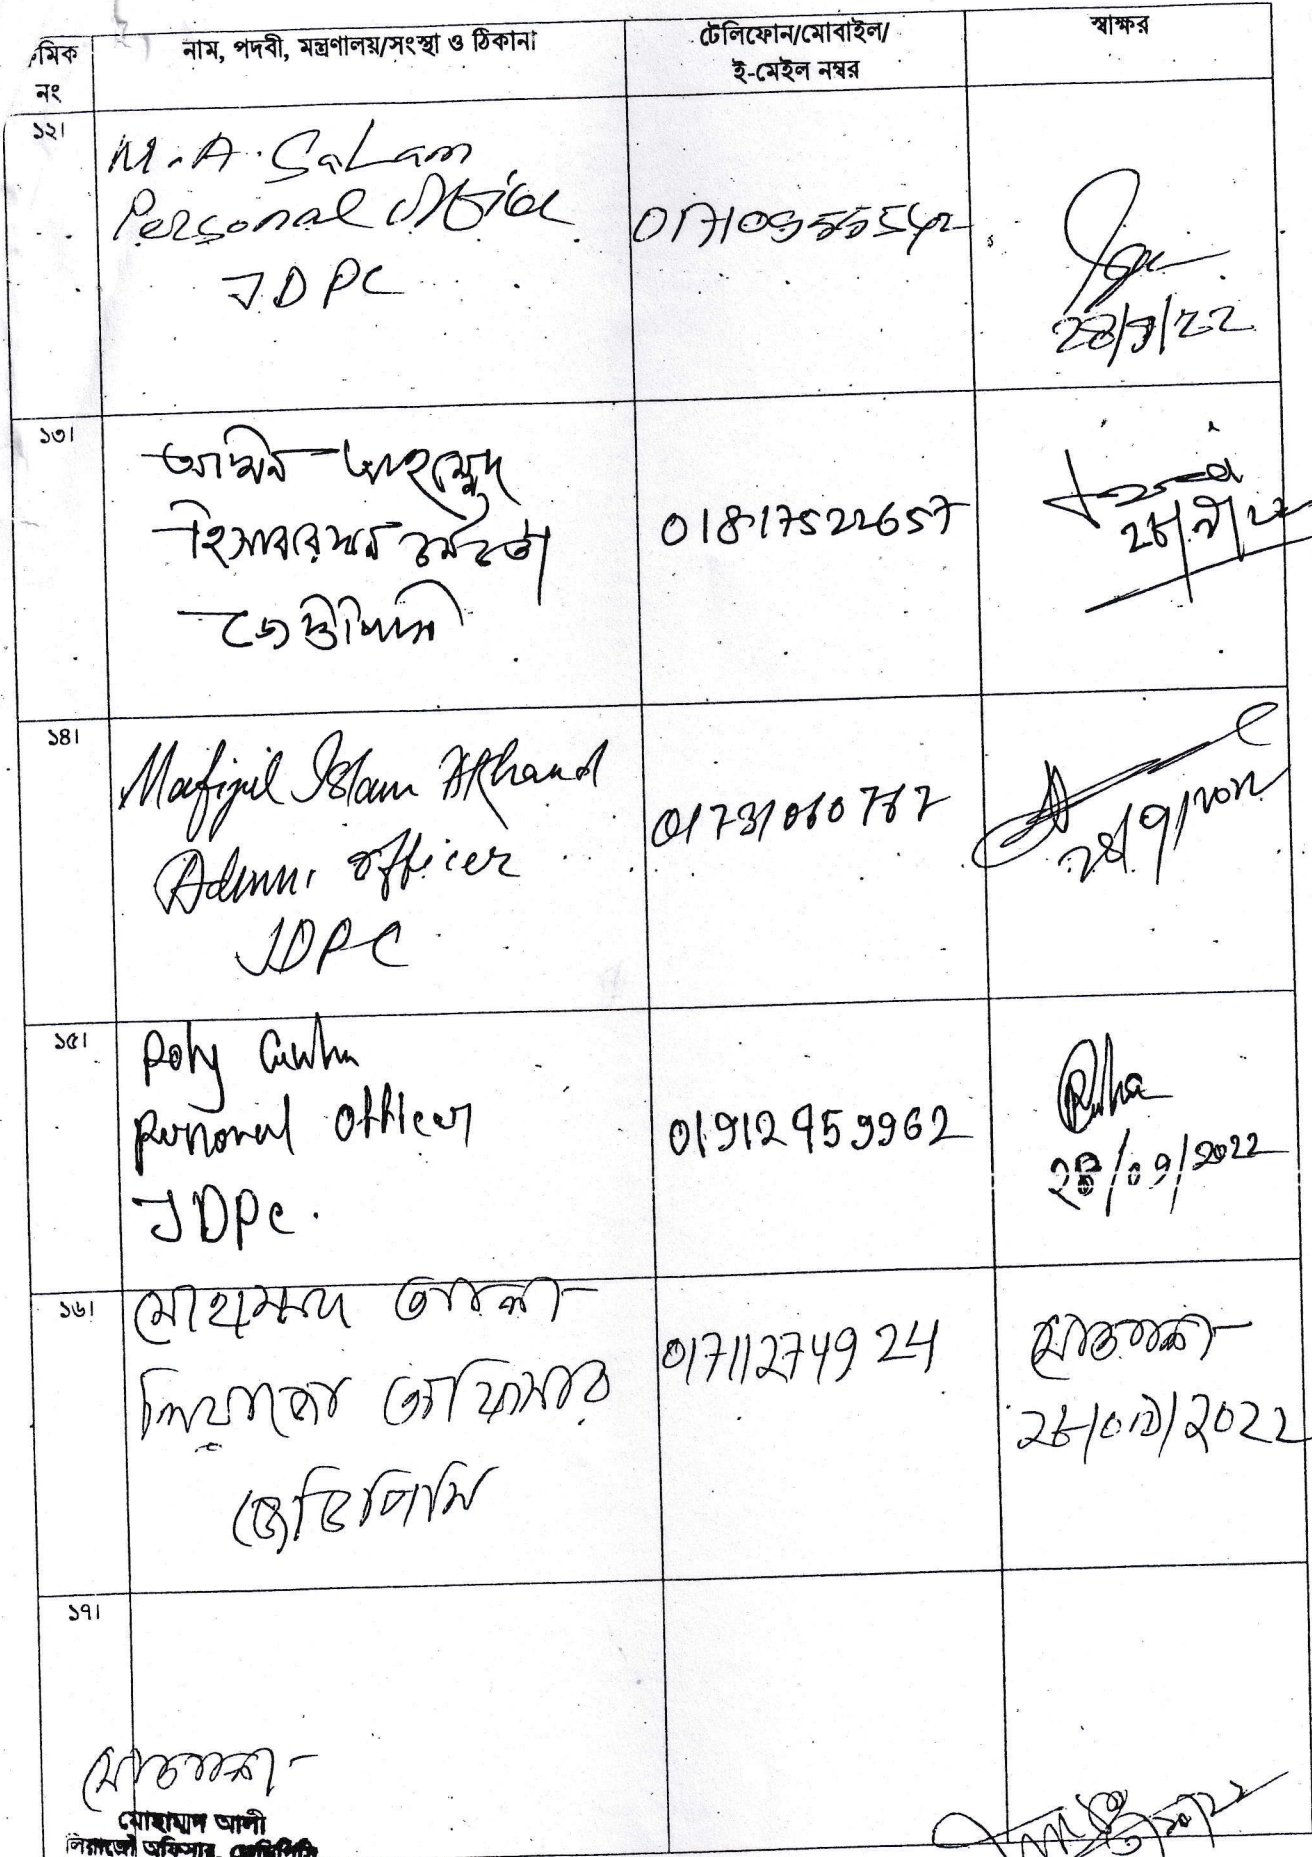 ক্রমিক নং
নাম, পদবী, মন্ত্রণালয়/সংস্থা ও ঠিকানা
টেলিফোন/মোবাইল/
ই-মেইল নম্বর
স্বাক্ষর
১২।
M.A. Salam
Personal Officer
JDPC
28/9/22
১৩।
আমিন আহম্মেদ
হিসাবরক্ষন কর্মকর্তা
জেডিপিসি
01817522657
২৮/৯/২২
১৪।
Mafizul Islam Akhand
Admn. officer
JDPC
01731060767
28/9/2022
১৫।
Poly Cuhha
Personal Officer
JDPC.
01912959962
28/09/2022
১৬।
মোহাম্মদ আলী
লিয়াজো অফিসার
জেডিপিসি
01711274924
মোঃ আলী
২৮/০৯/2022
১৭।
মোঃ আলী
মোহাম্মদ আলী
লিয়াজো অফিসার, জেডিপিসি